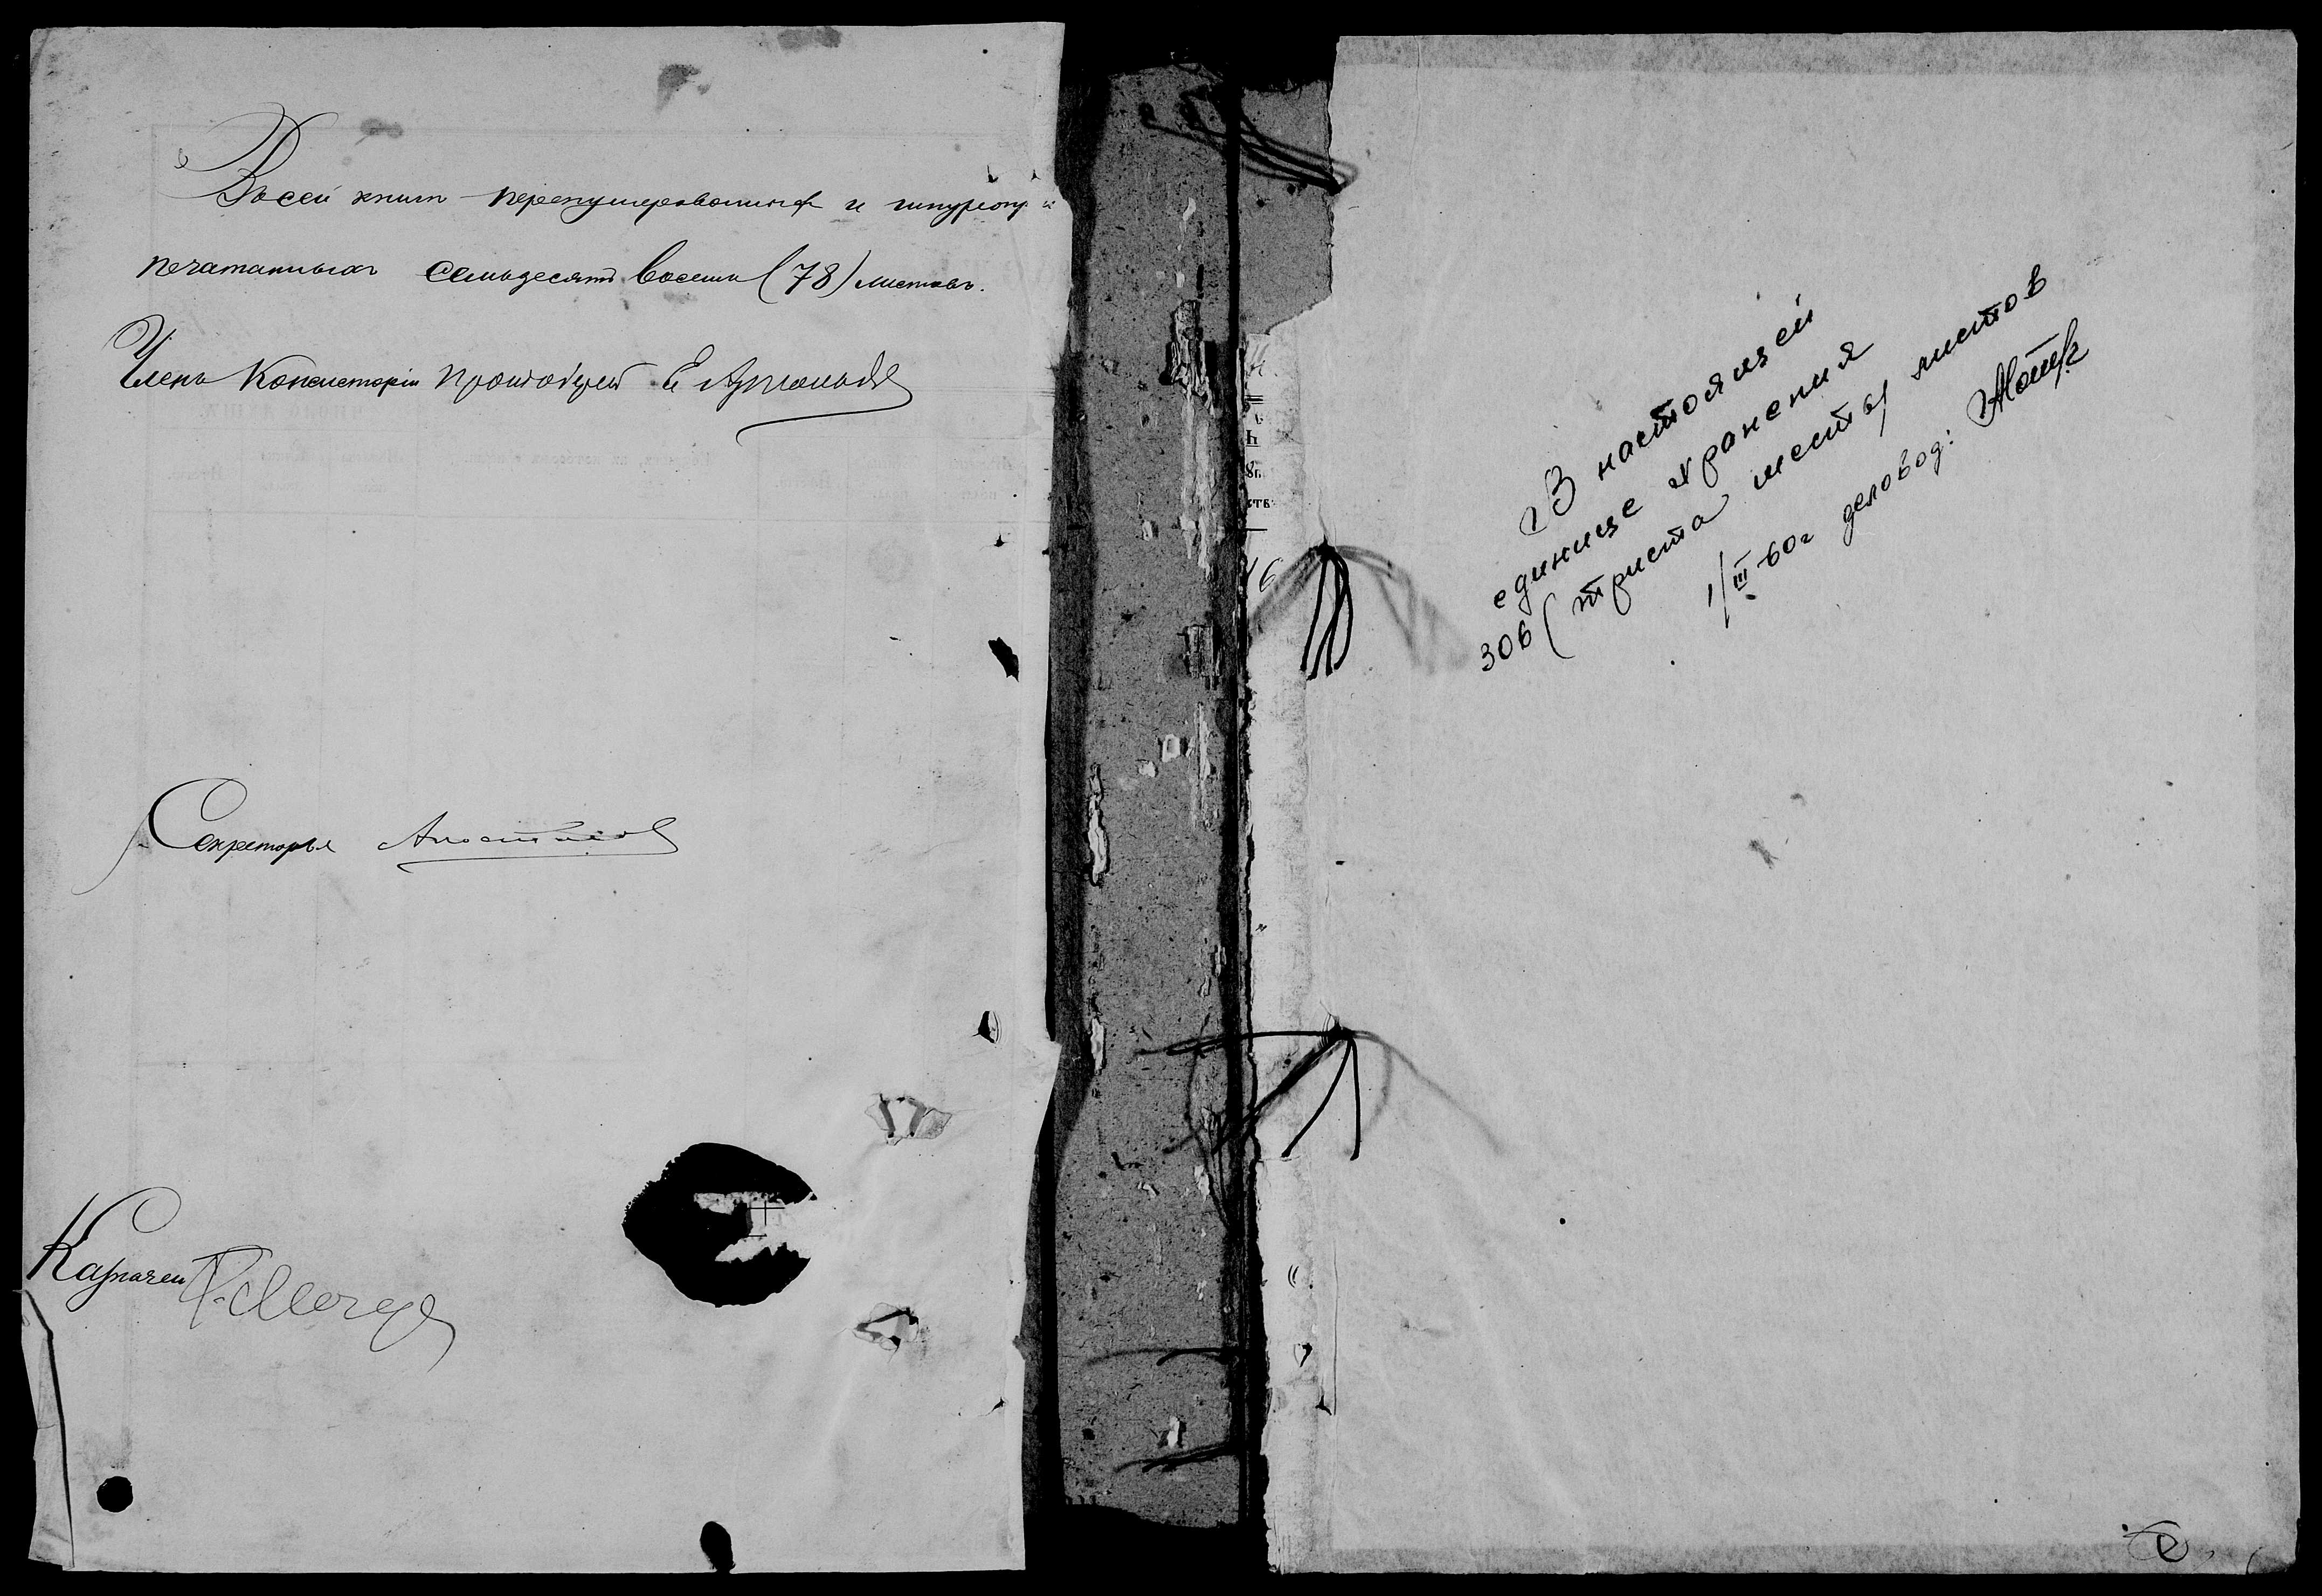 Въ сей книг перенумерованныхъ и шнуропри
печатанныхъ семьдесятъ восемь (78) листовъ.
Членъ Консисторіи Протоіерей Е
Секретарь
Казначей
В настоящей
единице хранения
306 (триста шесть) листов
1/III-60г деловод: